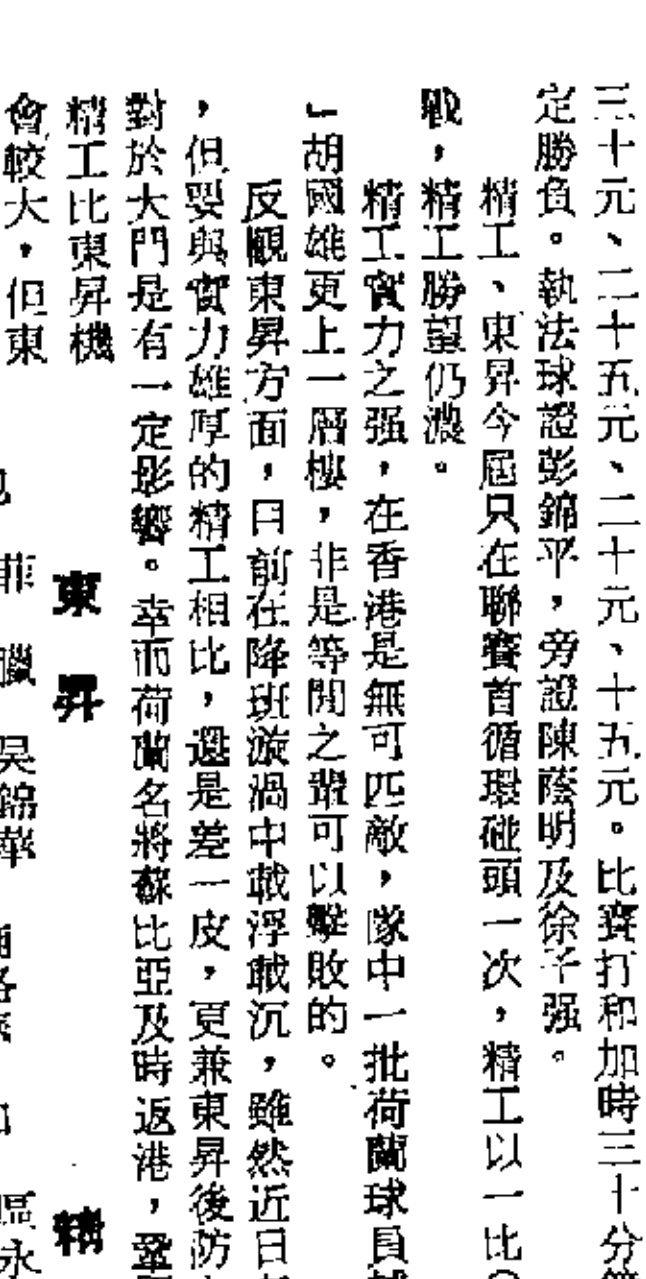 三十元、二十五元、二十元、十五元。比賽打和加時三十分
定勝負。執法球證彭錦平，旁證陳蔭明及徐子强。
精工、東昇今屆只在聯賽首循環碰頭一次，精工以一比
戰，精工勝望仍濃。
精工實力之强，在香港是無可匹敵，隊中一批荷蘭球員
」胡國雄更上一層樓，非是等閒之輩可以擊敗的。
反觀東昇方面，日前在降班漩渦中載浮載沉，雖然近日
，但要與實力雄厚的精工相比，還是差一皮，更兼東昇後防
對於大門是有一定影響。幸而荷蘭名將蘇比亞及時返港，
精工比東昇機
會較大，但東
東昇
精
菲
臘
吳錦華
區永